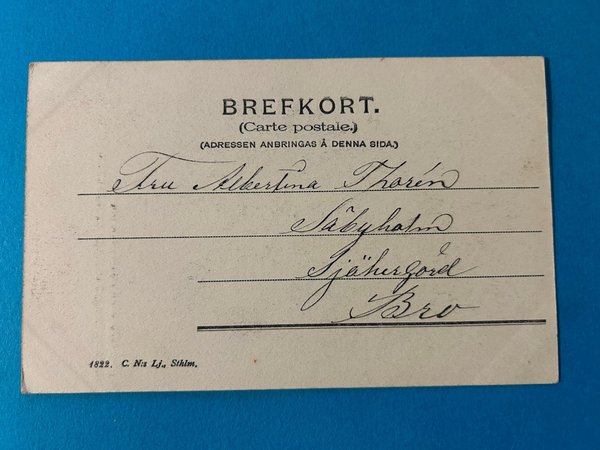 BREFKORT.
(Carte postale.)
(ADRESSEN ANBRINGAS Å DENNA SIDA.)
Fru Albertina Thorén
Säbyholm
Bro
1822. C. N:s Lj., Sthlm.